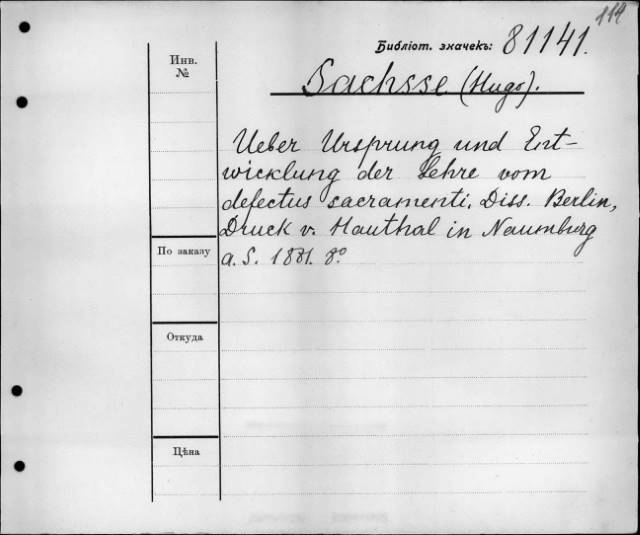 114
Библіот. значекъ: 81141.
Инв.
№
Sachsse (Hugo).
Ueber Ursprung und Ent-
wicklung der Lehre vom
defectus sacramenti. Diss. Berlin,
Druck v. Hauthal in Naumburg
a. S. 1881. 8º
По заказу
Откуда
Цѣна